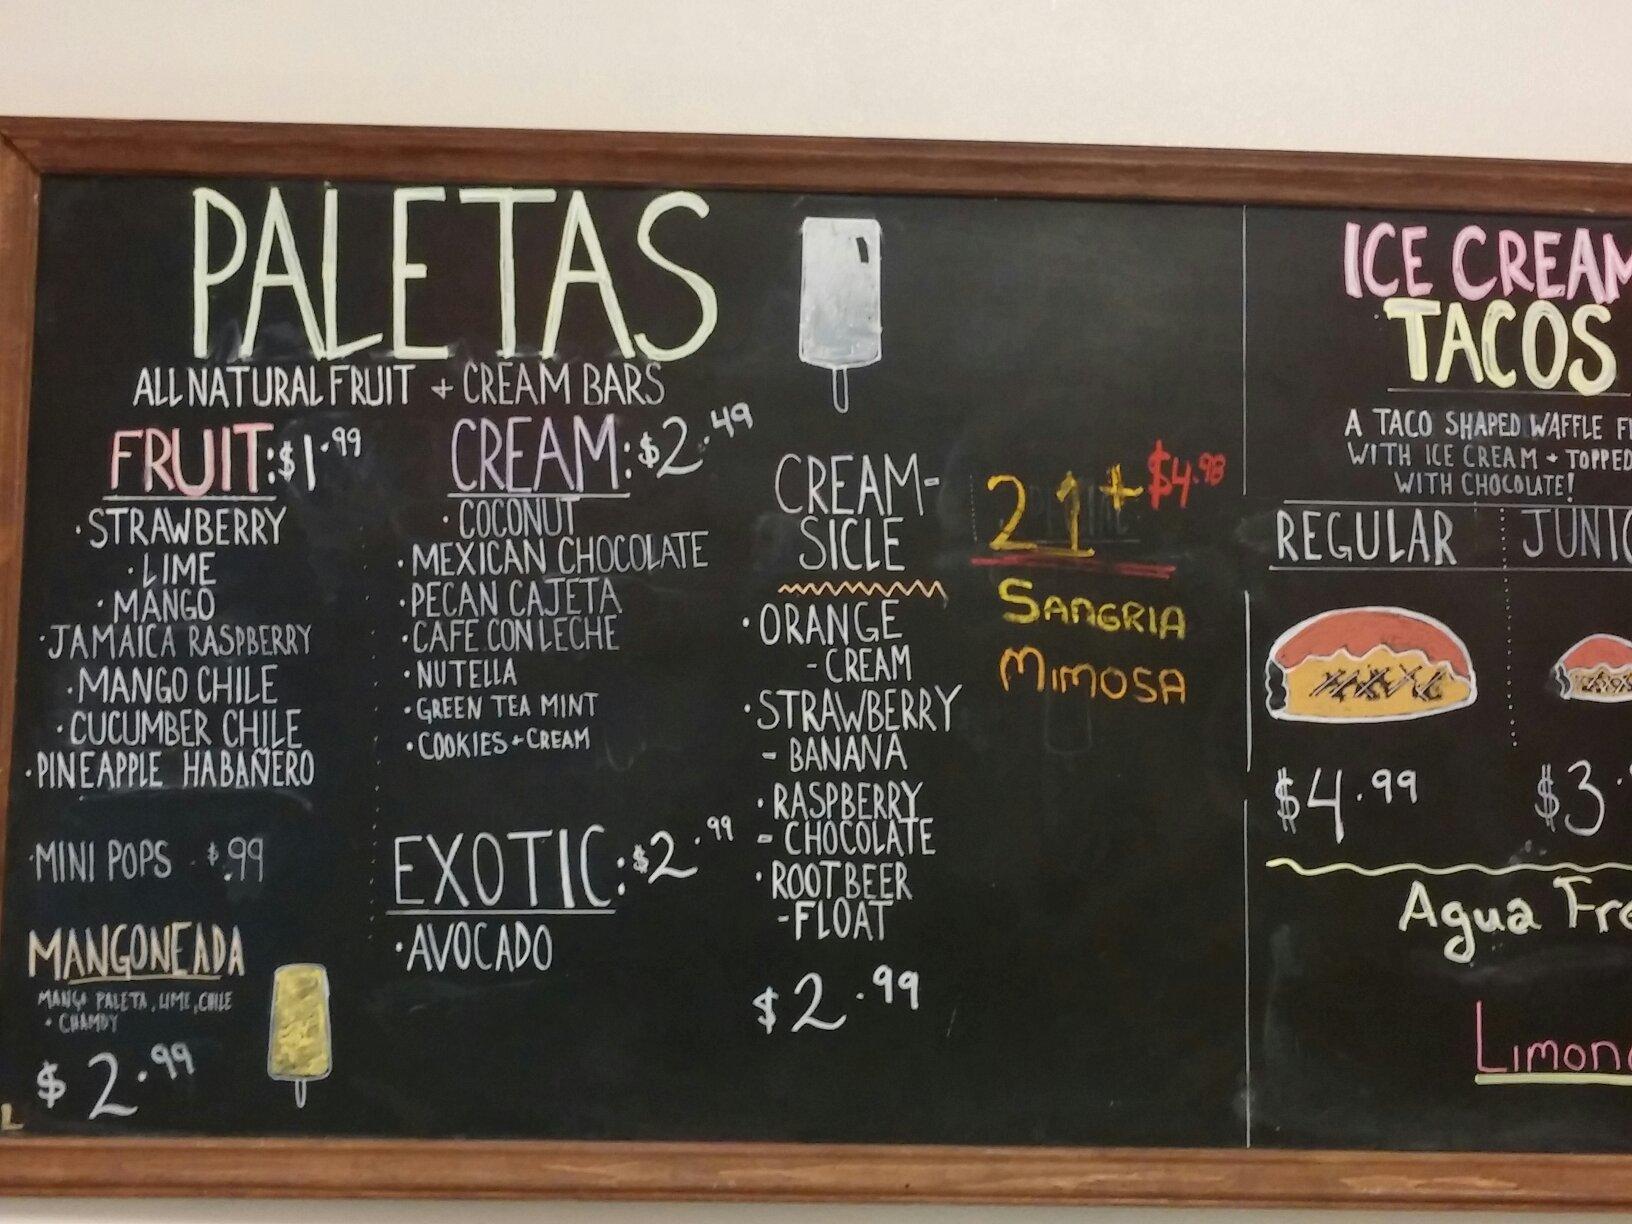 PALETAS
ALL NATURAL FRUIT + CREAM BARS
FRUIT: $1.99
·STRAWBERRY
·LIME
·MANGO
·JAMAICA RASPBERRY
·MANGO CHILE
·CUCUMBER CHILE
·PINEAPPLE HABAÑERO
·MINI POPS $.99
MANGONEADA
MANGO PALETA, LIME, CHILE
+ CHAMOY
$2.99
CREAM: $2.49
·COCONUT
·MEXICAN CHOCOLATE
·PECAN CAJETA
·CAFE CON LECHE
·NUTELLA
·GREEN TEA MINT
·COOKIES + CREAM
EXOTIC: $2.99
·AVOCADO
CREAM-
SICLE
·ORANGE
- CREAM
·STRAWBERRY
- BANANA
·RASPBERRY
- CHOCOLATE
·ROOTBEER
-FLOAT
$2.99
21+ $4.98
SANGRIA
MIMOSA
ICE CREAM
TACOS
A TACO SHAPED WAFFLE
WITH ICE CREAM + TOPPED
WITH CHOCOLATE!
REGULAR
$4.99
$3.
Agua
L